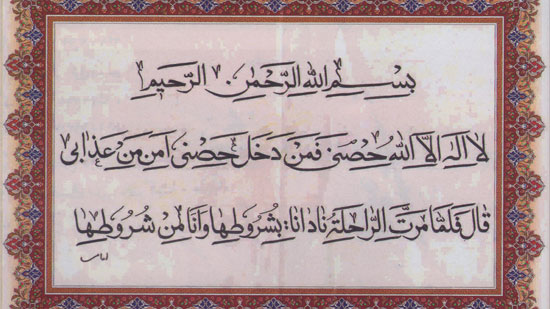 بِسْمِ اللهِ الرَّحْمٰنِ الرَّحيمِ
لا اِلٰهَ اِلَّا اللهُ حُصْنى فَمَنْ دَخَلَ حُصْنى اَمِنَ مِنْ عَذابى
قالَ فَلَمّا مَرَّتِ الرّاحِلَةُ نادانا: بِشُرُوطِها وَاَنَا مِنْ شُرُوطِها